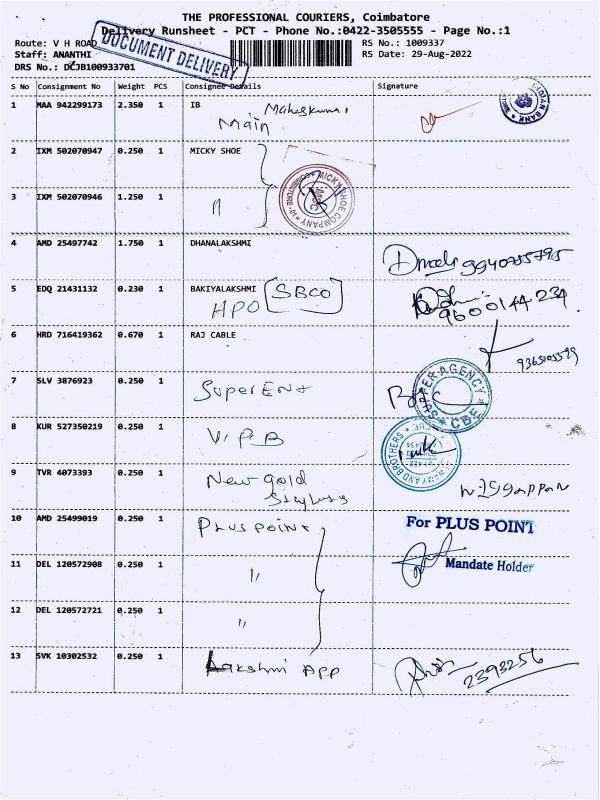 THE PROFESSIONAL COURIERS, Coimbatore
Delivery Runsheet - PCT - Phone No.:0422-3505555 - Page No.:1
Route: V H ROAD
RS No.: 1009337
Staff: ANANTHI
RS Date: 29-Aug-2022
DRS No.: DCJB100933701
DOCUMENT DELIVERY
S No Consignment No Weight PCS Consignee Details Signature
1 MAA 942299173 2.350 1 IB
Main
INDIAN BANK
2 IXM 502070947 0.250 1 MICKY SHOE
3 IXM 502070946 1.250 1 "
MICKY SHOE COMPANY
MSC
4 AMD 25497742 1.750 1 DHANALAKSHMI
5 EDQ 21431132 0.230 1 BAKIYALAKSHMI
HPO [SBCO]
9600144234
6 HRD 716419362 0.670 1 RAJ CABLE
7 SLV 3876923 0.250 1 Super Ent
SUPER AGENCY * CBE *
8 KUR 527350219 0.250 1 V.P.B
AND BROTHERS
9 TVR 4073393 0.250 1 New gold
10 AMD 25499019 0.250 1 PLUS POINT
For PLUS POINT
Mandate Holder
11 DEL 120572908 0.250 1 "
12 DEL 120572721 0.250 1 "
13 SVK 10302532 0.250 1 Lakshmi APP
2393256